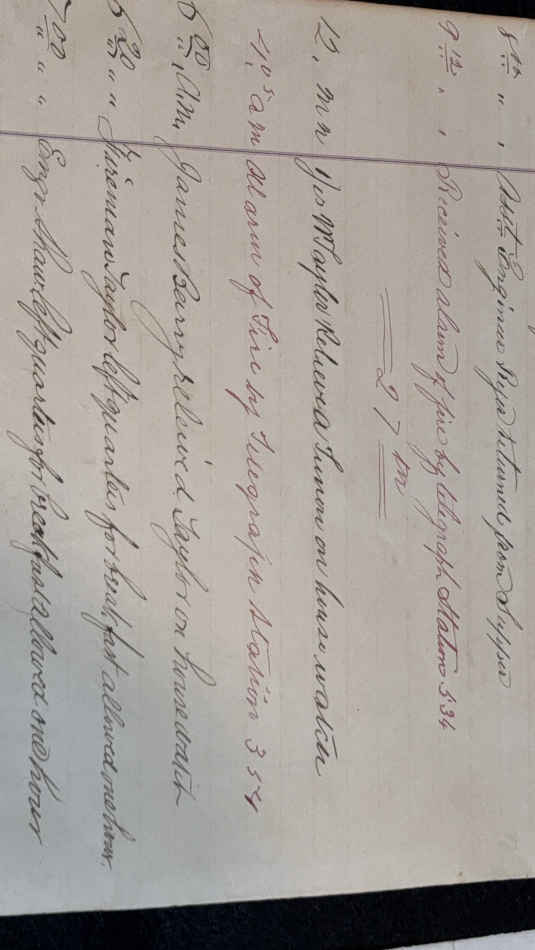 8 10 " , Asst Engineer Ryer returned from Supper
9 12 " , Received alarm of fire by telegraph Station 534
27 th
12, mn Jas McTaylor Relieved on house watch
4 05 am Alarm of Fire by Telegraph Station 354
6 00 " Am, James Berry relieved Taylor on housewatch
6 20 " " Fireman Taylor left quarters for breakfast allowed one hour.
7 00 " " Engr Shaw left quarters for breakfast allowed one hour